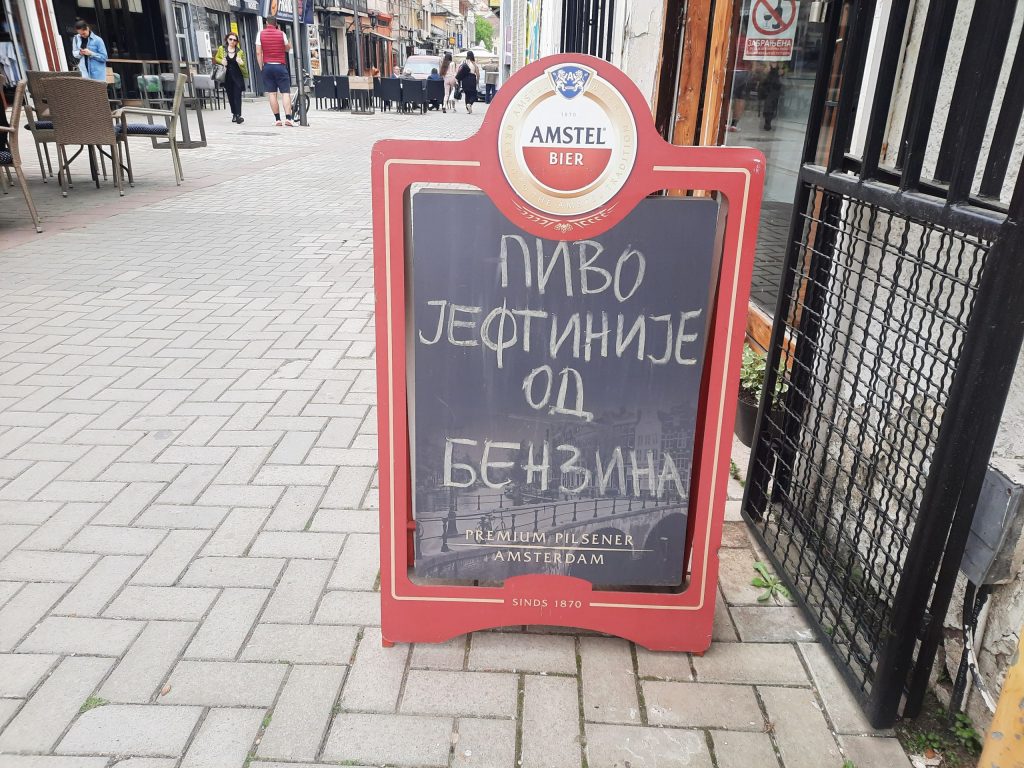 1870
AMSTEL
BIER
ПИВО
ЈЕФТИНИЈЕ
ОД
БЕНЗИНА
PREMIUM PILSENER
AMSTERDAM
SINDS 1870
ЗАБРАЊЕНА